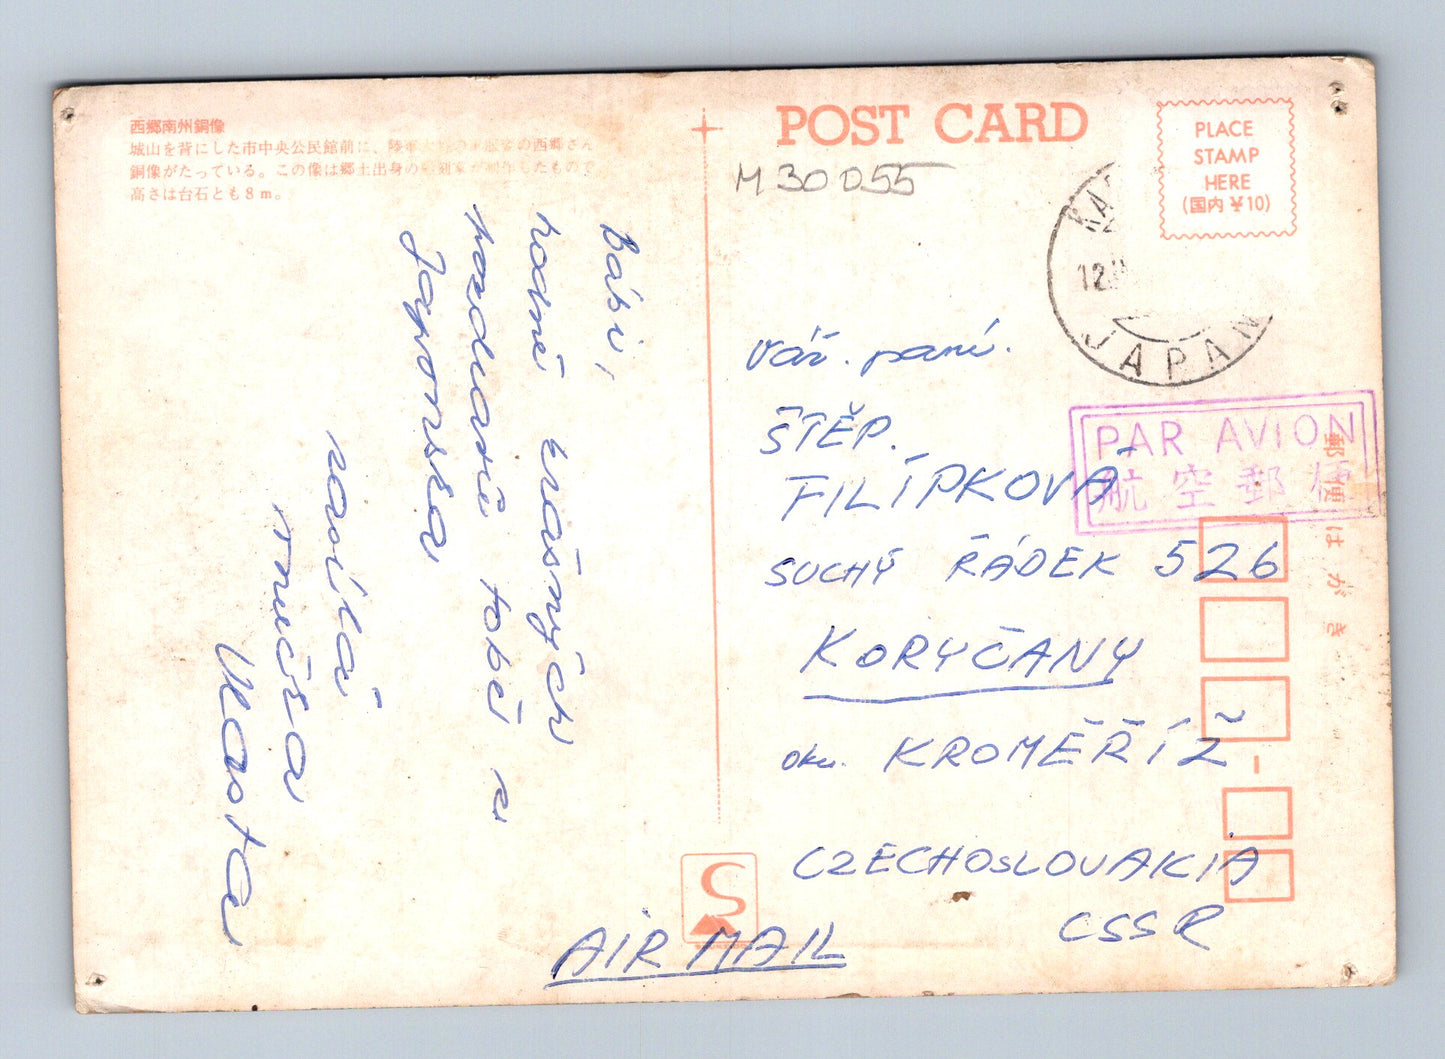 西郷南州銅像
城山を背にした市中央公民館前に、陸軍大将の正服姿の西郷さん
銅像がたっている。この像は郷土出身の彫刻家が制作したもので
高さは台石とも8m。
POST CARD
M30055
PLACE
STAMP
HERE
(国内 ¥10)
12
JAPAN
PAR AVION
航空郵便
郵便はがき
Bábi,
hodně krásných
pozdravů tobě z
Japonska
posílá
vnučka
Vlasta
Váž. paní.
ŠTĚP.
FILÍPKOVÁ
SUCHÝ ŘÁDEK 526
KORYČANY
okr. KROMĚŘÍŽ
CZECHOSLOVAKIA
CSSR
AIR MAIL